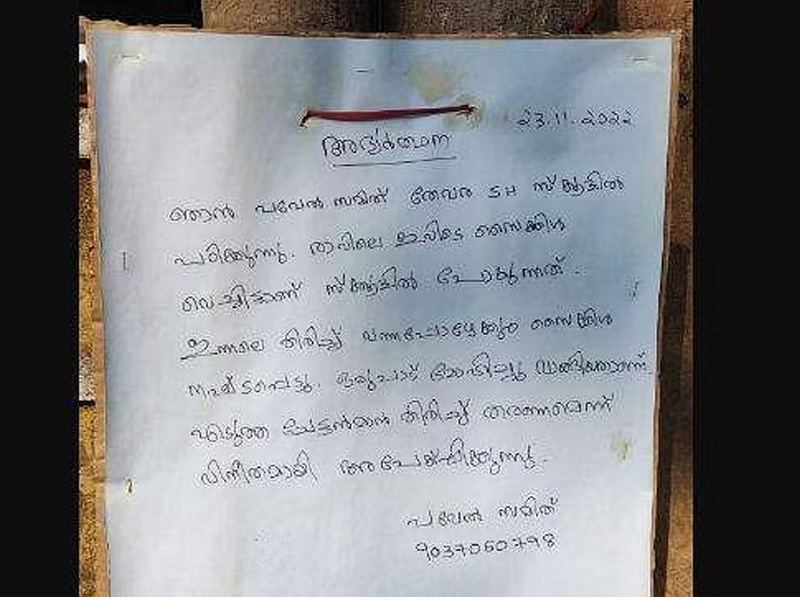 23.11.2022
അഭ്യർത്ഥന
ഞാൻ പവേൽ സമിത് തേവര SH സ്കൂളിൽ
പഠിക്കുന്നു. രാവിലെ ഇവിടെ സൈക്കിൾ
വെച്ചിട്ടാണ് സ്കൂളിൽ പോകുന്നത്.
ഇന്നലെ തിരിച്ച് വന്നപ്പോഴേക്കും സൈക്കിൾ
നഷ്ടപ്പെട്ടു. ഒരുപാട് മോഹിച്ചു വാങ്ങിയതാണ്.
എടുത്ത ചേട്ടൻമാർ തിരിച്ച് തരണമെന്ന്
വിനീതമായി അപേക്ഷിക്കുന്നു.
പവേൽ സമിത്
9037060798